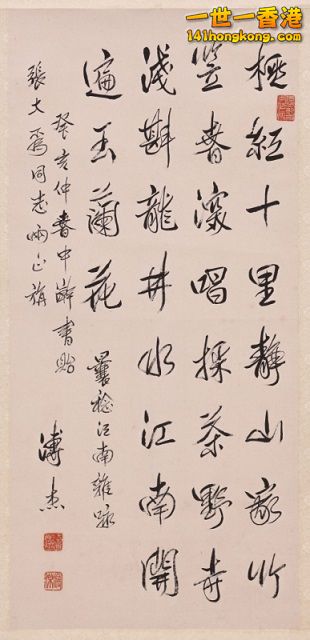 一世一香港
141hongkong.com
桃紅十里靜山家竹
笠春深唱採茶野寺
淺斟龍井水江南開
遍玉蘭花
曩稔江南雜詠
癸亥仲春中澣書貽
張大為同志哂正旃
溥杰